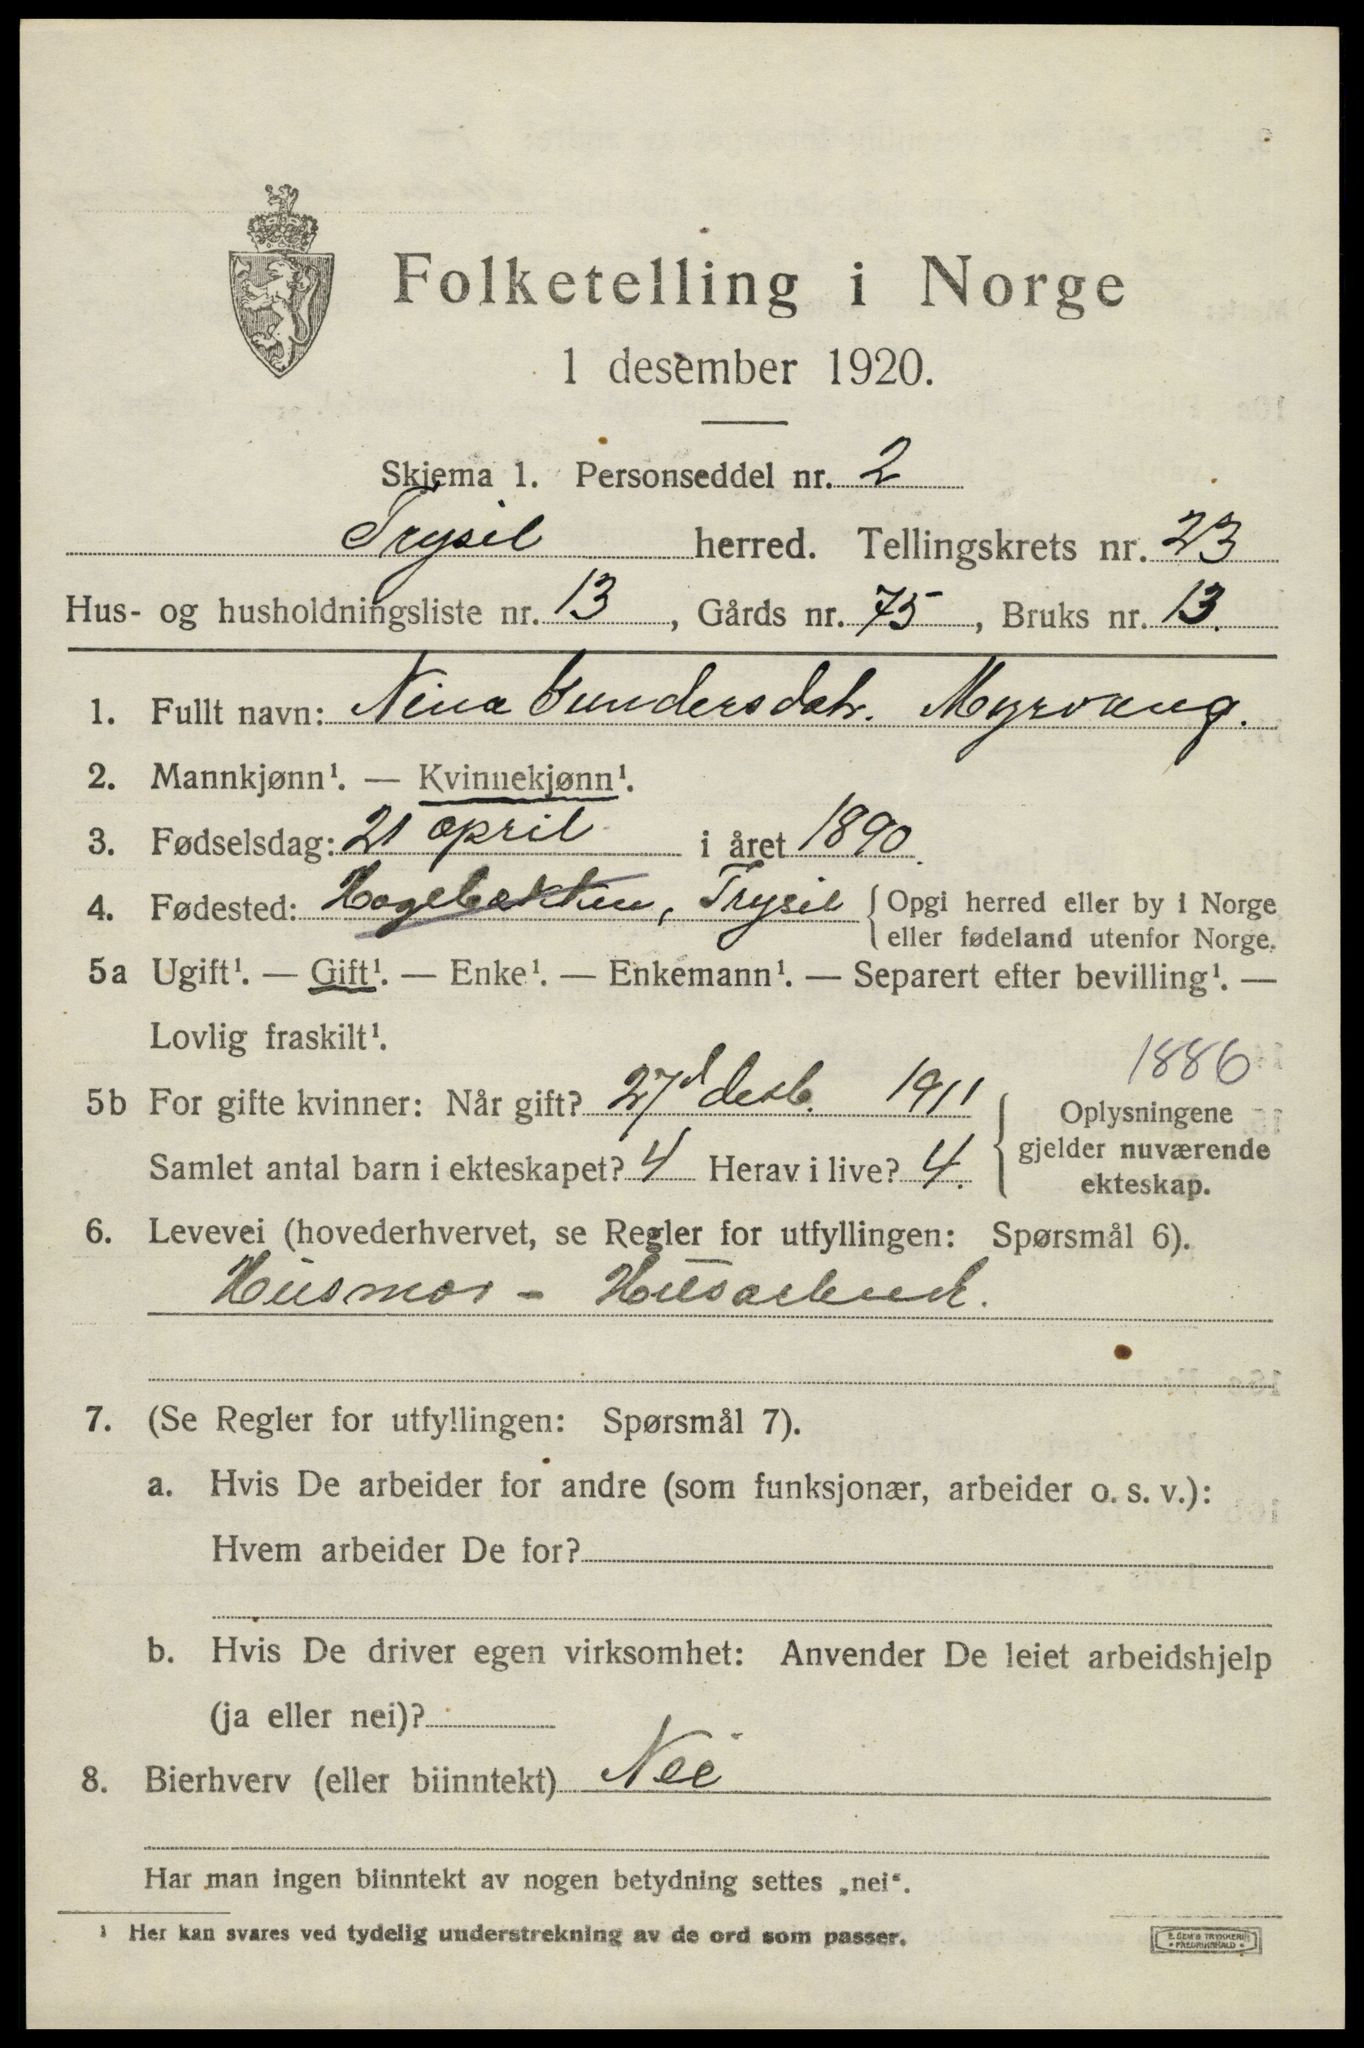 Folketelling i Norge
1 desember 1920.
Skjema 1. Personseddel nr. 2
Trysil herred. Tellingskrets nr. 23
Hus- og husholdningsliste nr. 13, Gårds nr. 75, Bruks nr. 13.
1. Fullt navn: Nina Gundersdatr. Myrvang.
2. Mannkjønn¹. — Kvinnekjønn¹.
3. Fødselsdag: 21 april i året 1890.
4. Fødested: Hagebakken, Trysil { Opgi herred eller by i Norge
eller fødeland utenfor Norge.
5a Ugift¹. — Gift¹. — Enke¹. — Enkemann¹. — Separert efter bevilling¹. —
Lovlig fraskilt¹.
1886
5b For gifte kvinner: Når gift? 27d desb. 1911
Samlet antal barn i ekteskapet? 4 Herav i live? 4.
Oplysningene
gjelder nuværende
ekteskap.
6. Levevei (hovederhvervet, se Regler for utfyllingen: Spørsmål 6).
Husmor - Husarbeid.
7. (Se Regler for utfyllingen: Spørsmål 7).
a. Hvis De arbeider for andre (som funksjonær, arbeider o. s. v.):
Hvem arbeider De for?
b. Hvis De driver egen virksomhet: Anvender De leiet arbeidshjelp
(ja eller nei)?
8. Bierhverv (eller biinntekt) Nei
Har man ingen biinntekt av nogen betydning settes „nei“.
¹ Her kan svares ved tydelig understrekning av de ord som passer.
E. SEM'S TRYKKERI
FREDRIKSHALD